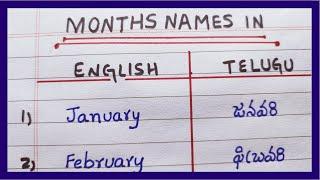 MONTHS NAMES IN
ENGLISH TELUGU
1) January జనవరి
2) February ఫిబ్రవరి